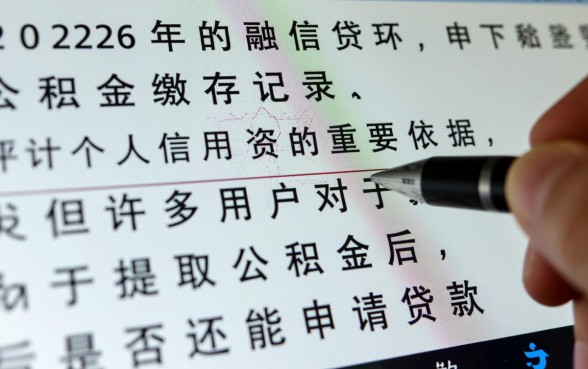 2 0 2226 年的融信贷环, 申下
公积金缴存记录、
评计个人信用资的重要依据,
但许多用户对于
于提取公积金后,
后是否还能申请贷款